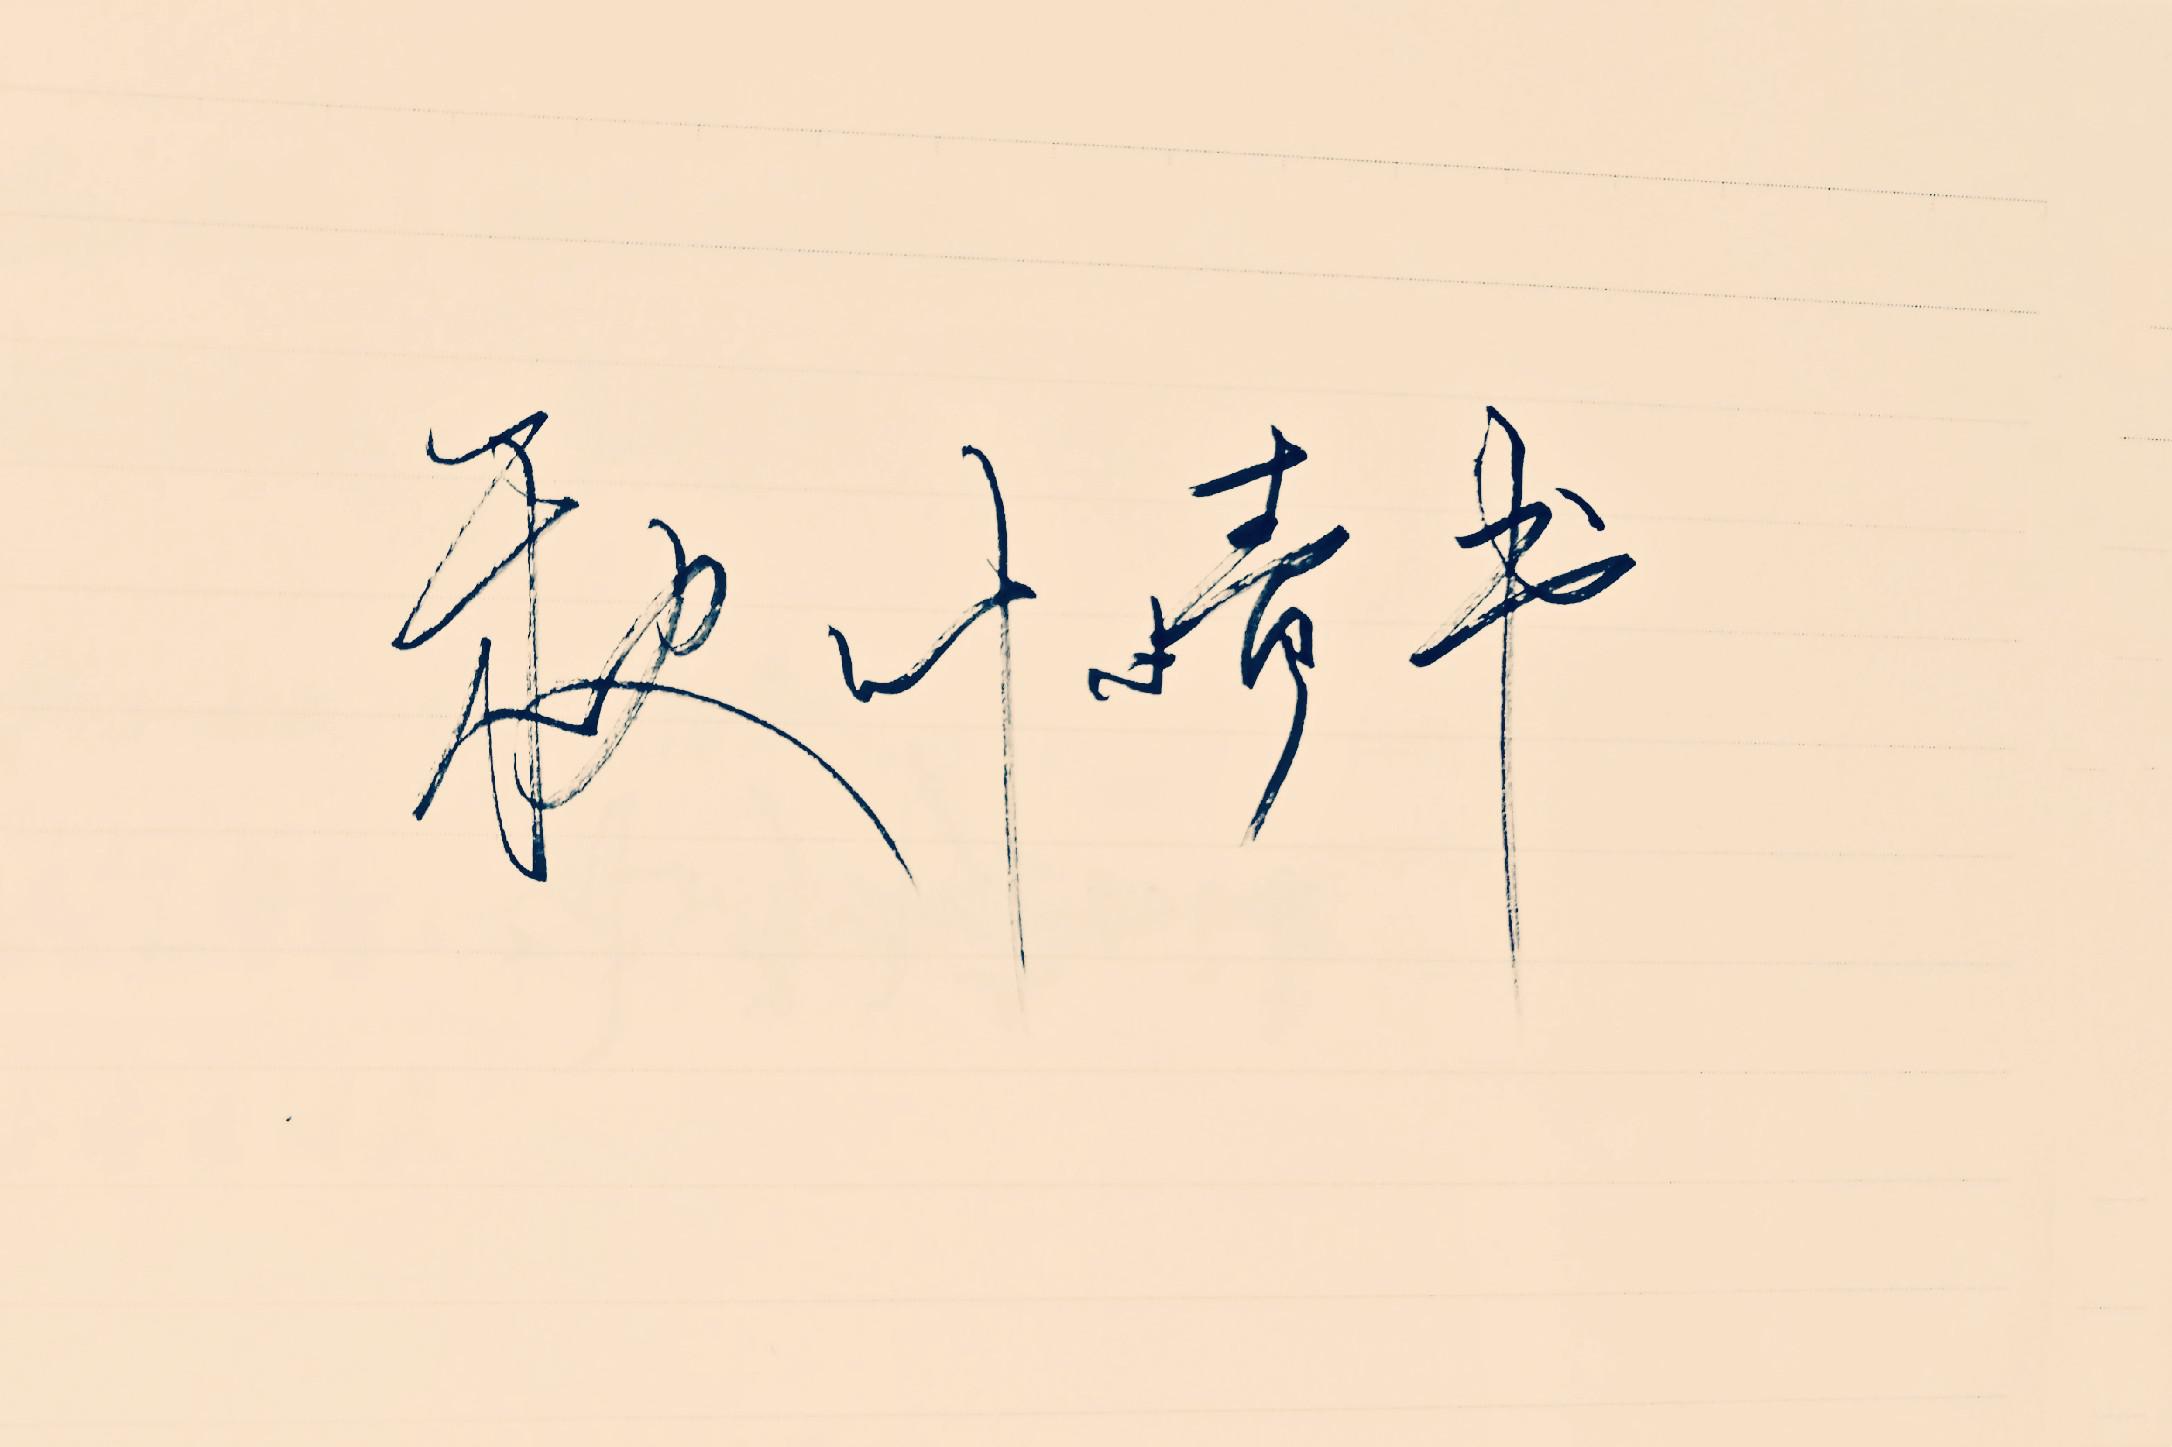 秋叶情书